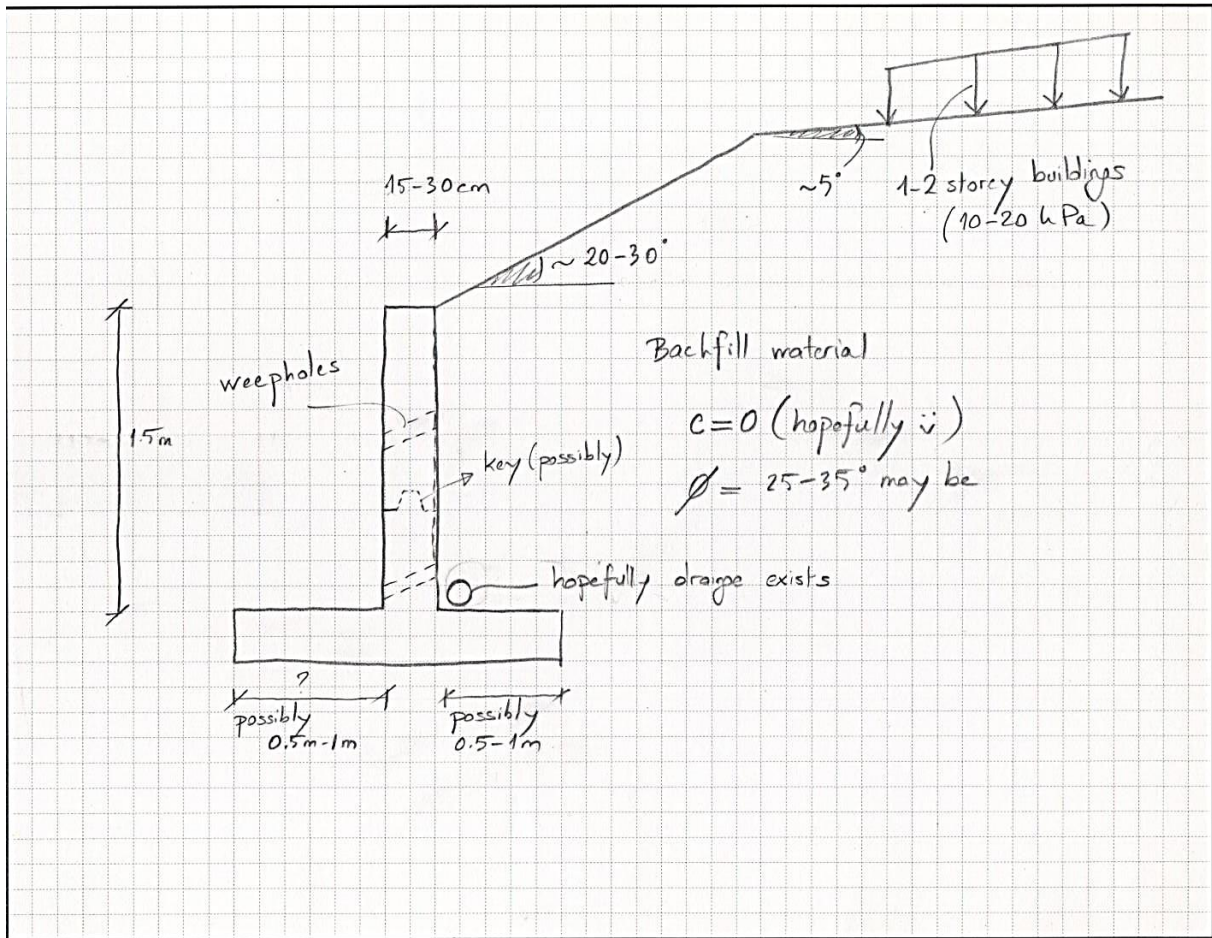 15-30cm
~5°
1-2 storey buildings
(10-20 kPa)
~ 20-30°
weepholes
Backfill material
1.5m
c=0 (hopefully ü)
key (possibly)
ϕ= 25-35° may be
hopefully draige exists
?
possibly
0.5m-1m
possibly
0.5-1m